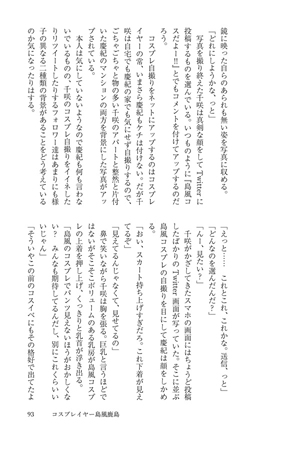 鏡に映った自らのあられも無い姿を写真に収める。
「どれにしようかな、っと」
写真を撮り終えた千咲は真剣な顔をしてTwitterに
投稿するものを選んでいる。いつものように『島風コ
スだよー!!』とでもコメントを付けてアップするのだ
ろう。
コスプレ自撮りをネットにアップするのはコスプレ
イヤーの常、いまさら慶紀もケチは付けない。だが千
咲は自宅でも慶紀の家でも気にせず自撮りするので、
ごちゃごちゃと物の多い千咲のアパートと整然と片付
いた慶紀のマンションの両方を背景にした写真がアッ
プされていた。
本人は気にしていないようなので慶紀も何も言わな
いでいるものの、千咲のコスプレ自撮りをイイネした
りリツイートしたりするフォロワー達はあまりにも様
子の異なる二種類の背景があることをどう考えている
のか気になったりはする。
「えっと……　これとこれ、これかな。送信、っと」
「どんなのを選んだんだ?」
「んー、見たい?」
千咲がかざしてきたスマホの画面にはちょうど投稿
したばかりのTwitter画面が写っていた。そこに並ぶ
島風コスプレの自撮りを目にして慶紀は顔をしかめ
る。
「おい、スカート持ち上げすぎだろ。これ下着が見え
てるぞ」
「見えてるんじゃなくて、見せてるの」
鼻で笑いながら千咲は胸を張る。巨乳と言うほどで
はないがそこそこボリュームのある乳房が島風コスプ
レの上着を押し上げ、くっきりと乳首が浮き出る。
「島風のコスプレでパンツ見えないほうがおかしくな
いっ?　みんなも期待してるんだし、別にこれくらいい
いじゃん」
「そういやこの前のコスイベにもその格好で出てたよ
93　コスプレイヤー島風鹿島